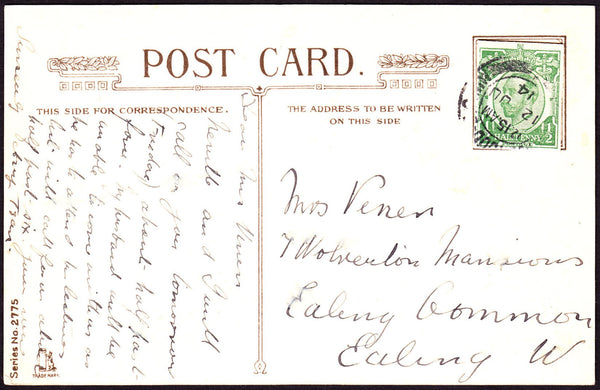 POST CARD.
THIS SIDE FOR CORRESPONDENCE.
THE ADDRESS TO BE WRITTEN
ON THIS SIDE
Dear Mrs Venen
and I will
call on you tomorrow
(Friday) about half past
four. My husband will be
unable to come with us as
he has to attend the lectures
but will call for us about
half past six
Yours
Sincerely
Mrs Venen
7 Wolverton Mansions
Ealing Common
Ealing W
12 15AM
JU
14
HALFPENNY
1/2
Series No. 2775
TRADE MARK